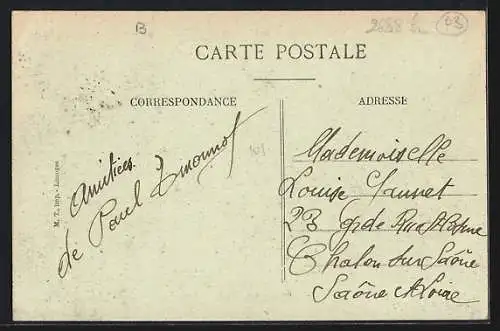 B
2688
B3
CARTE POSTALE
CORRESPONDANCE
ADRESSE
Amitiées
de Paul
Mademoiselle
Louise Jannet
23 gde Rue St Cosme
Chalon sur Saône
Saône et Loire
M. T. Imp. - Limoges
101